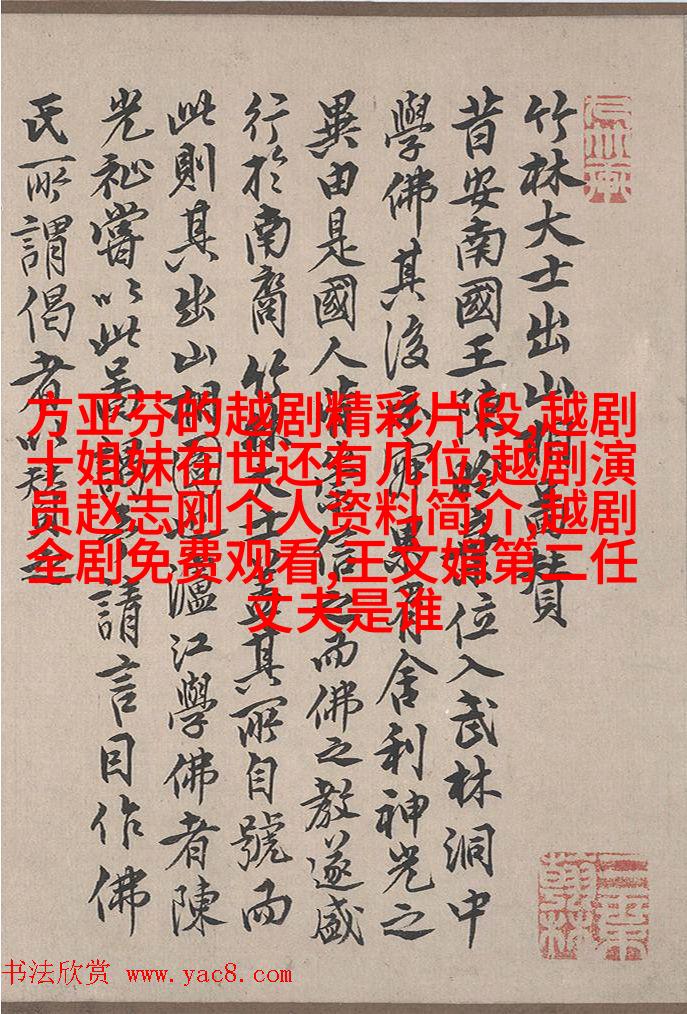 竹林大士出山
昔安南國王陳位入武林洞中
學佛其後示寂果有舍利神光之
異由是國人信之而佛之教遂盛
行於南裔竹林大士盖其所自號而
此則其出山相圖也瀘江學佛者陳
光祉嘗以此請言目作佛
氏所謂偈者以贊之
方亚芬的越剧精彩片段,越剧
十姐妹在世还有几位,越剧演
员赵志刚个人资料简介,越剧
全剧免费观看,王文娟第二任
丈夫是谁
书法欣赏 www.yac8.com